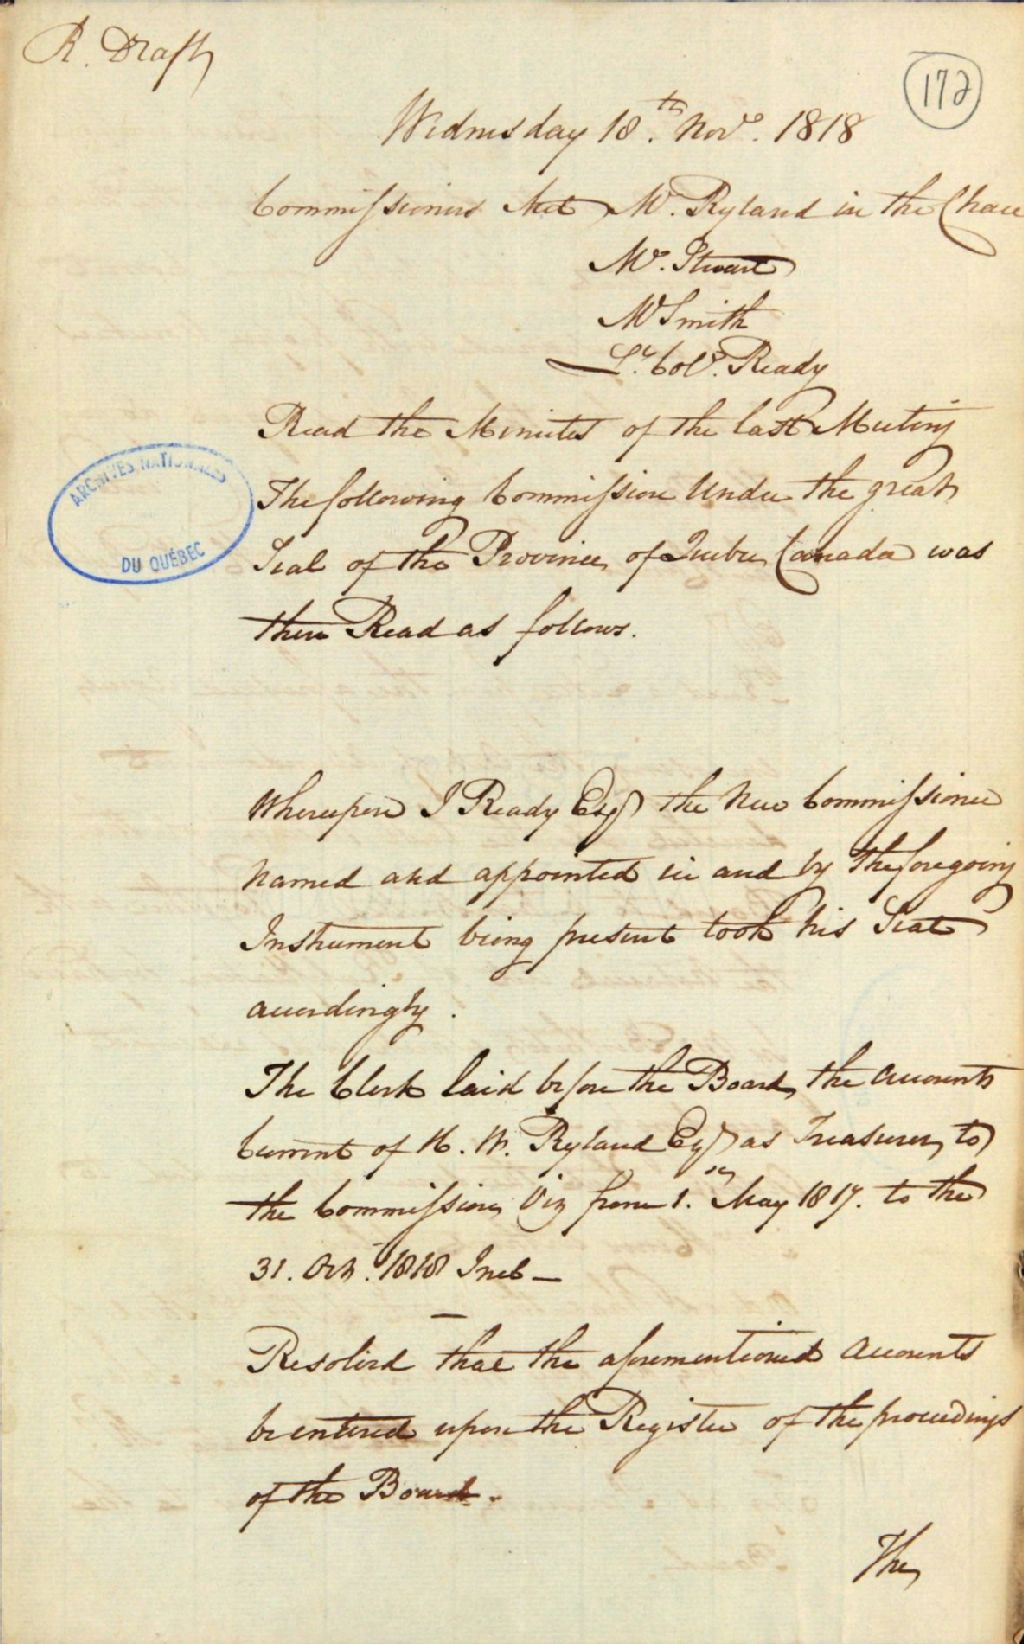 R. Draft
172
Wednesday 18.th Nov.r 1818
Commissioners Met Mr. Ryland in the Chair
Mr. Stuart
Mr Smith
Lt. Col. Ready
Read the Minutes of the last Meeting
The following Commission Under the great
Seal of the Province of Quebec Canada was
then Read as follows.
ARCHIVES NATIONALES
DU QUÉBEC
Whereupon J Ready Esqr the New Commissioner
Named and appointed in and by the foregoing
Instrument being present took his Seat
accordingly.
The Clerk laid before the Board the accounts
Current of H. W. Ryland Esqr as Treasurer to
the Commission Viz from 1.st May 1817. to the
31. Oct. 1818 Incl —
Resolved that the aforementioned accounts
be entered upon the Register of the proceedings
of the Board.
The